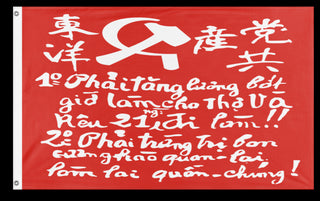 東 產 党
洋 共
1º Phải tăng lương bớt
giờ làm cho thợ Và
21 làm!!
2º Phải trừng trị bọn
cường hào quan-lại
quần-chúng!